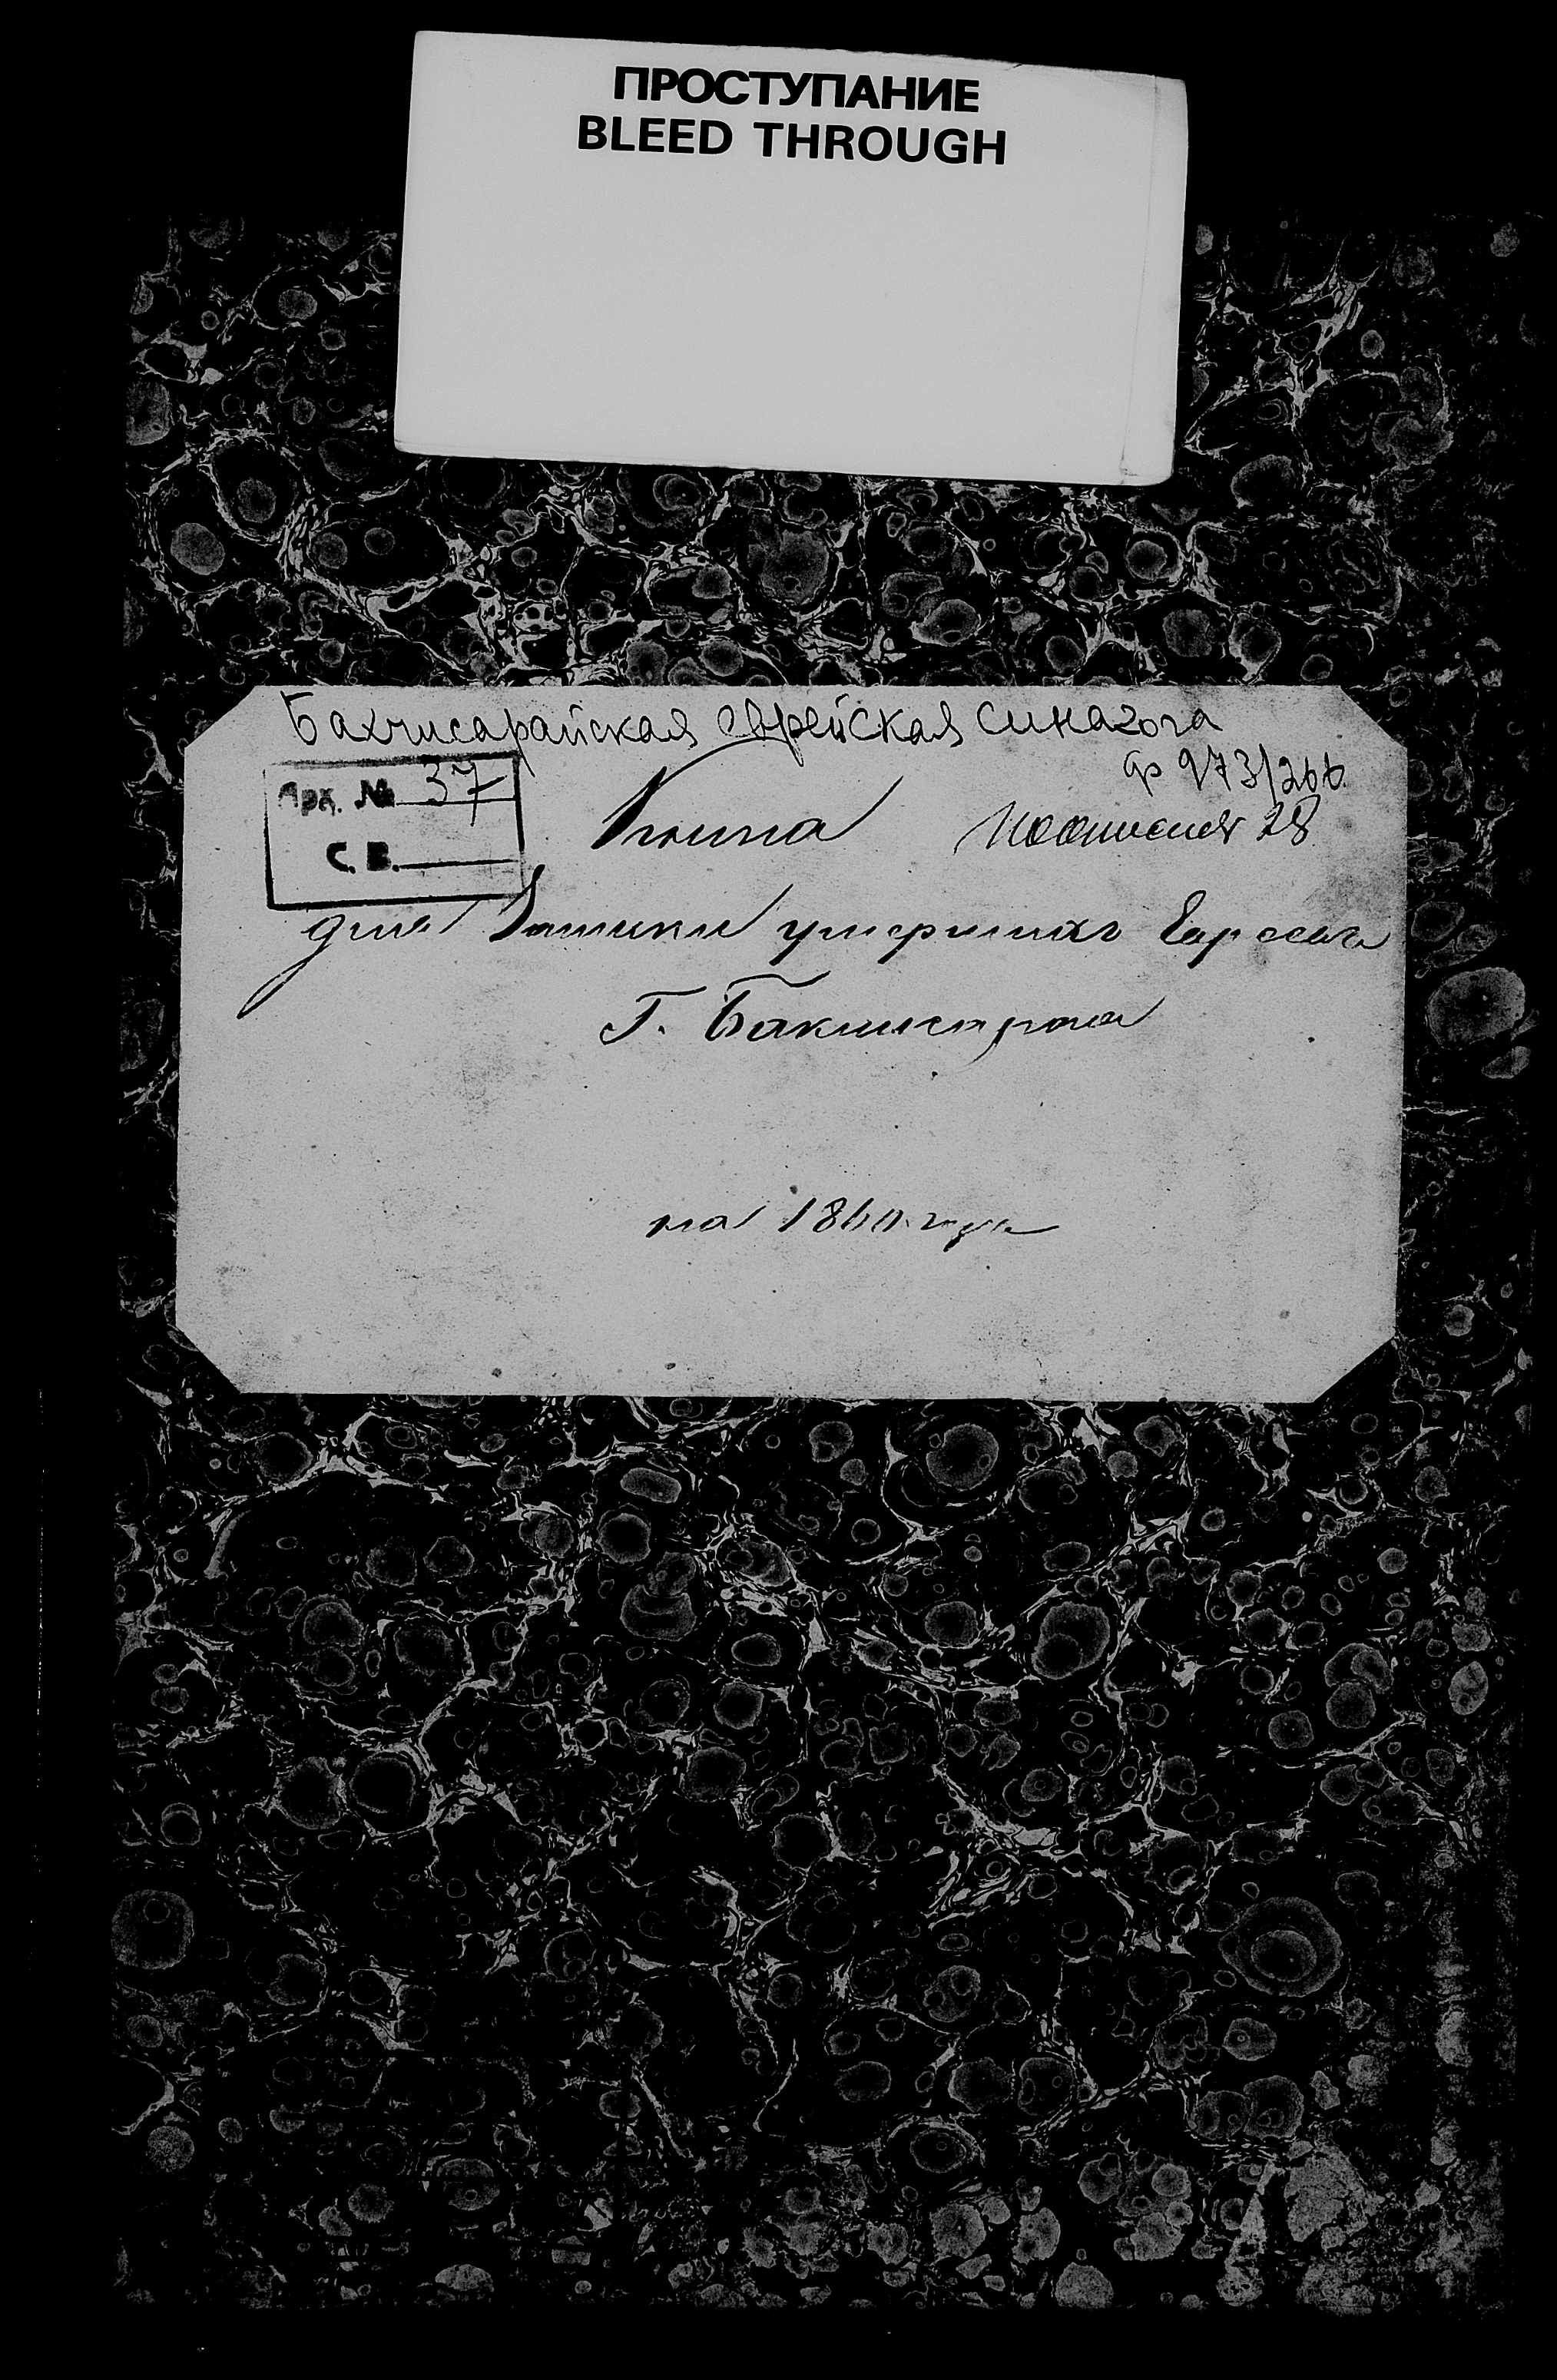 ПРОСТУПАНИЕ
BLEED THROUGH
Бахчисарайская еврейская синагога
ф 973/266
Арх. № 37
Книга
28
С. В.
для Записки умершихъ Евреевъ
Г. Бакчисарая
на 1860 годъ